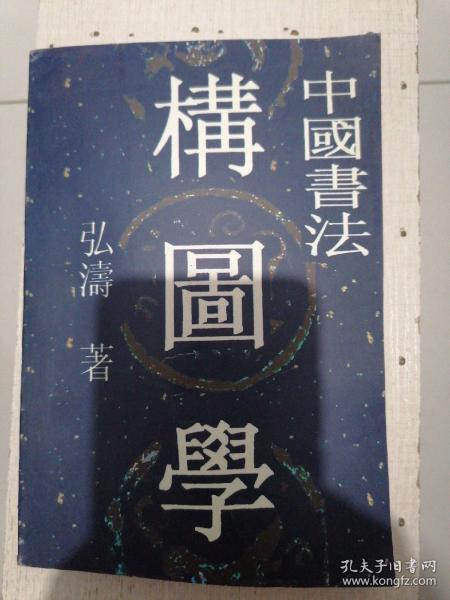 中國書法
構圖學
弘濤 著
孔夫子旧书网
www.kongfz.com